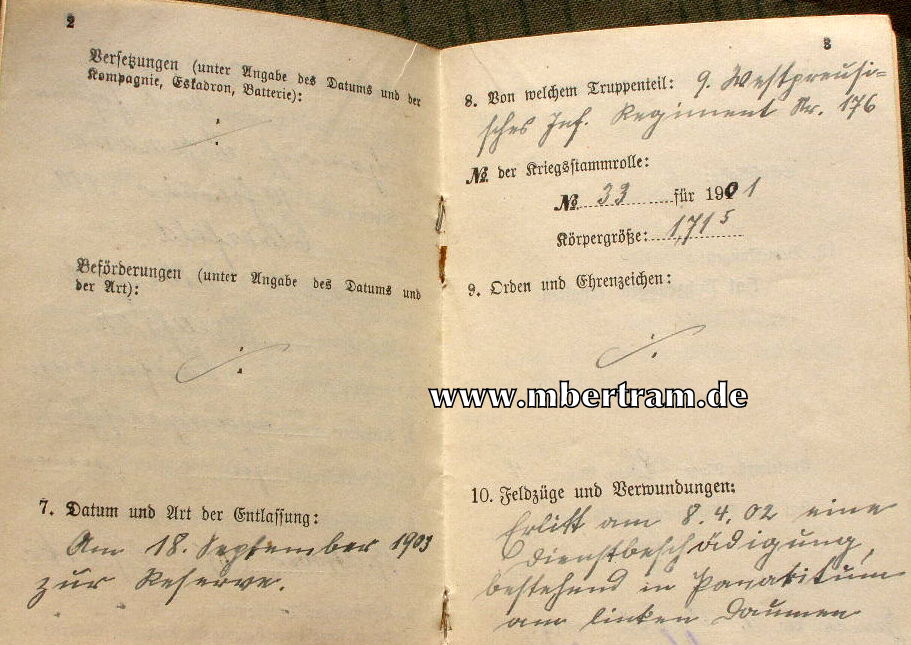 2
Versetzungen (unter Angabe des Datums und der
Kompagnie, Eskadron, Batterie):
./.
Beförderungen (unter Angabe des Datums und
der Art):
./.
7. Datum und Art der Entlassung:
Am 18. September 1903
zur Reserve.
3
8. Von welchem Truppenteil: 9. Westpreusi-
sches Inf. Regiment Nr. 176
№ der Kriegsstammrolle:
№ 33 für 1901
Körpergröße: 1,71⁵
9. Orden und Ehrenzeichen:
./.
www.mbertram.de
10. Feldzüge und Verwundungen:
Erlitt am 8.4.02 eine
Dienstbeschädigung,
bestehend in Panaritium
am linken Daumen